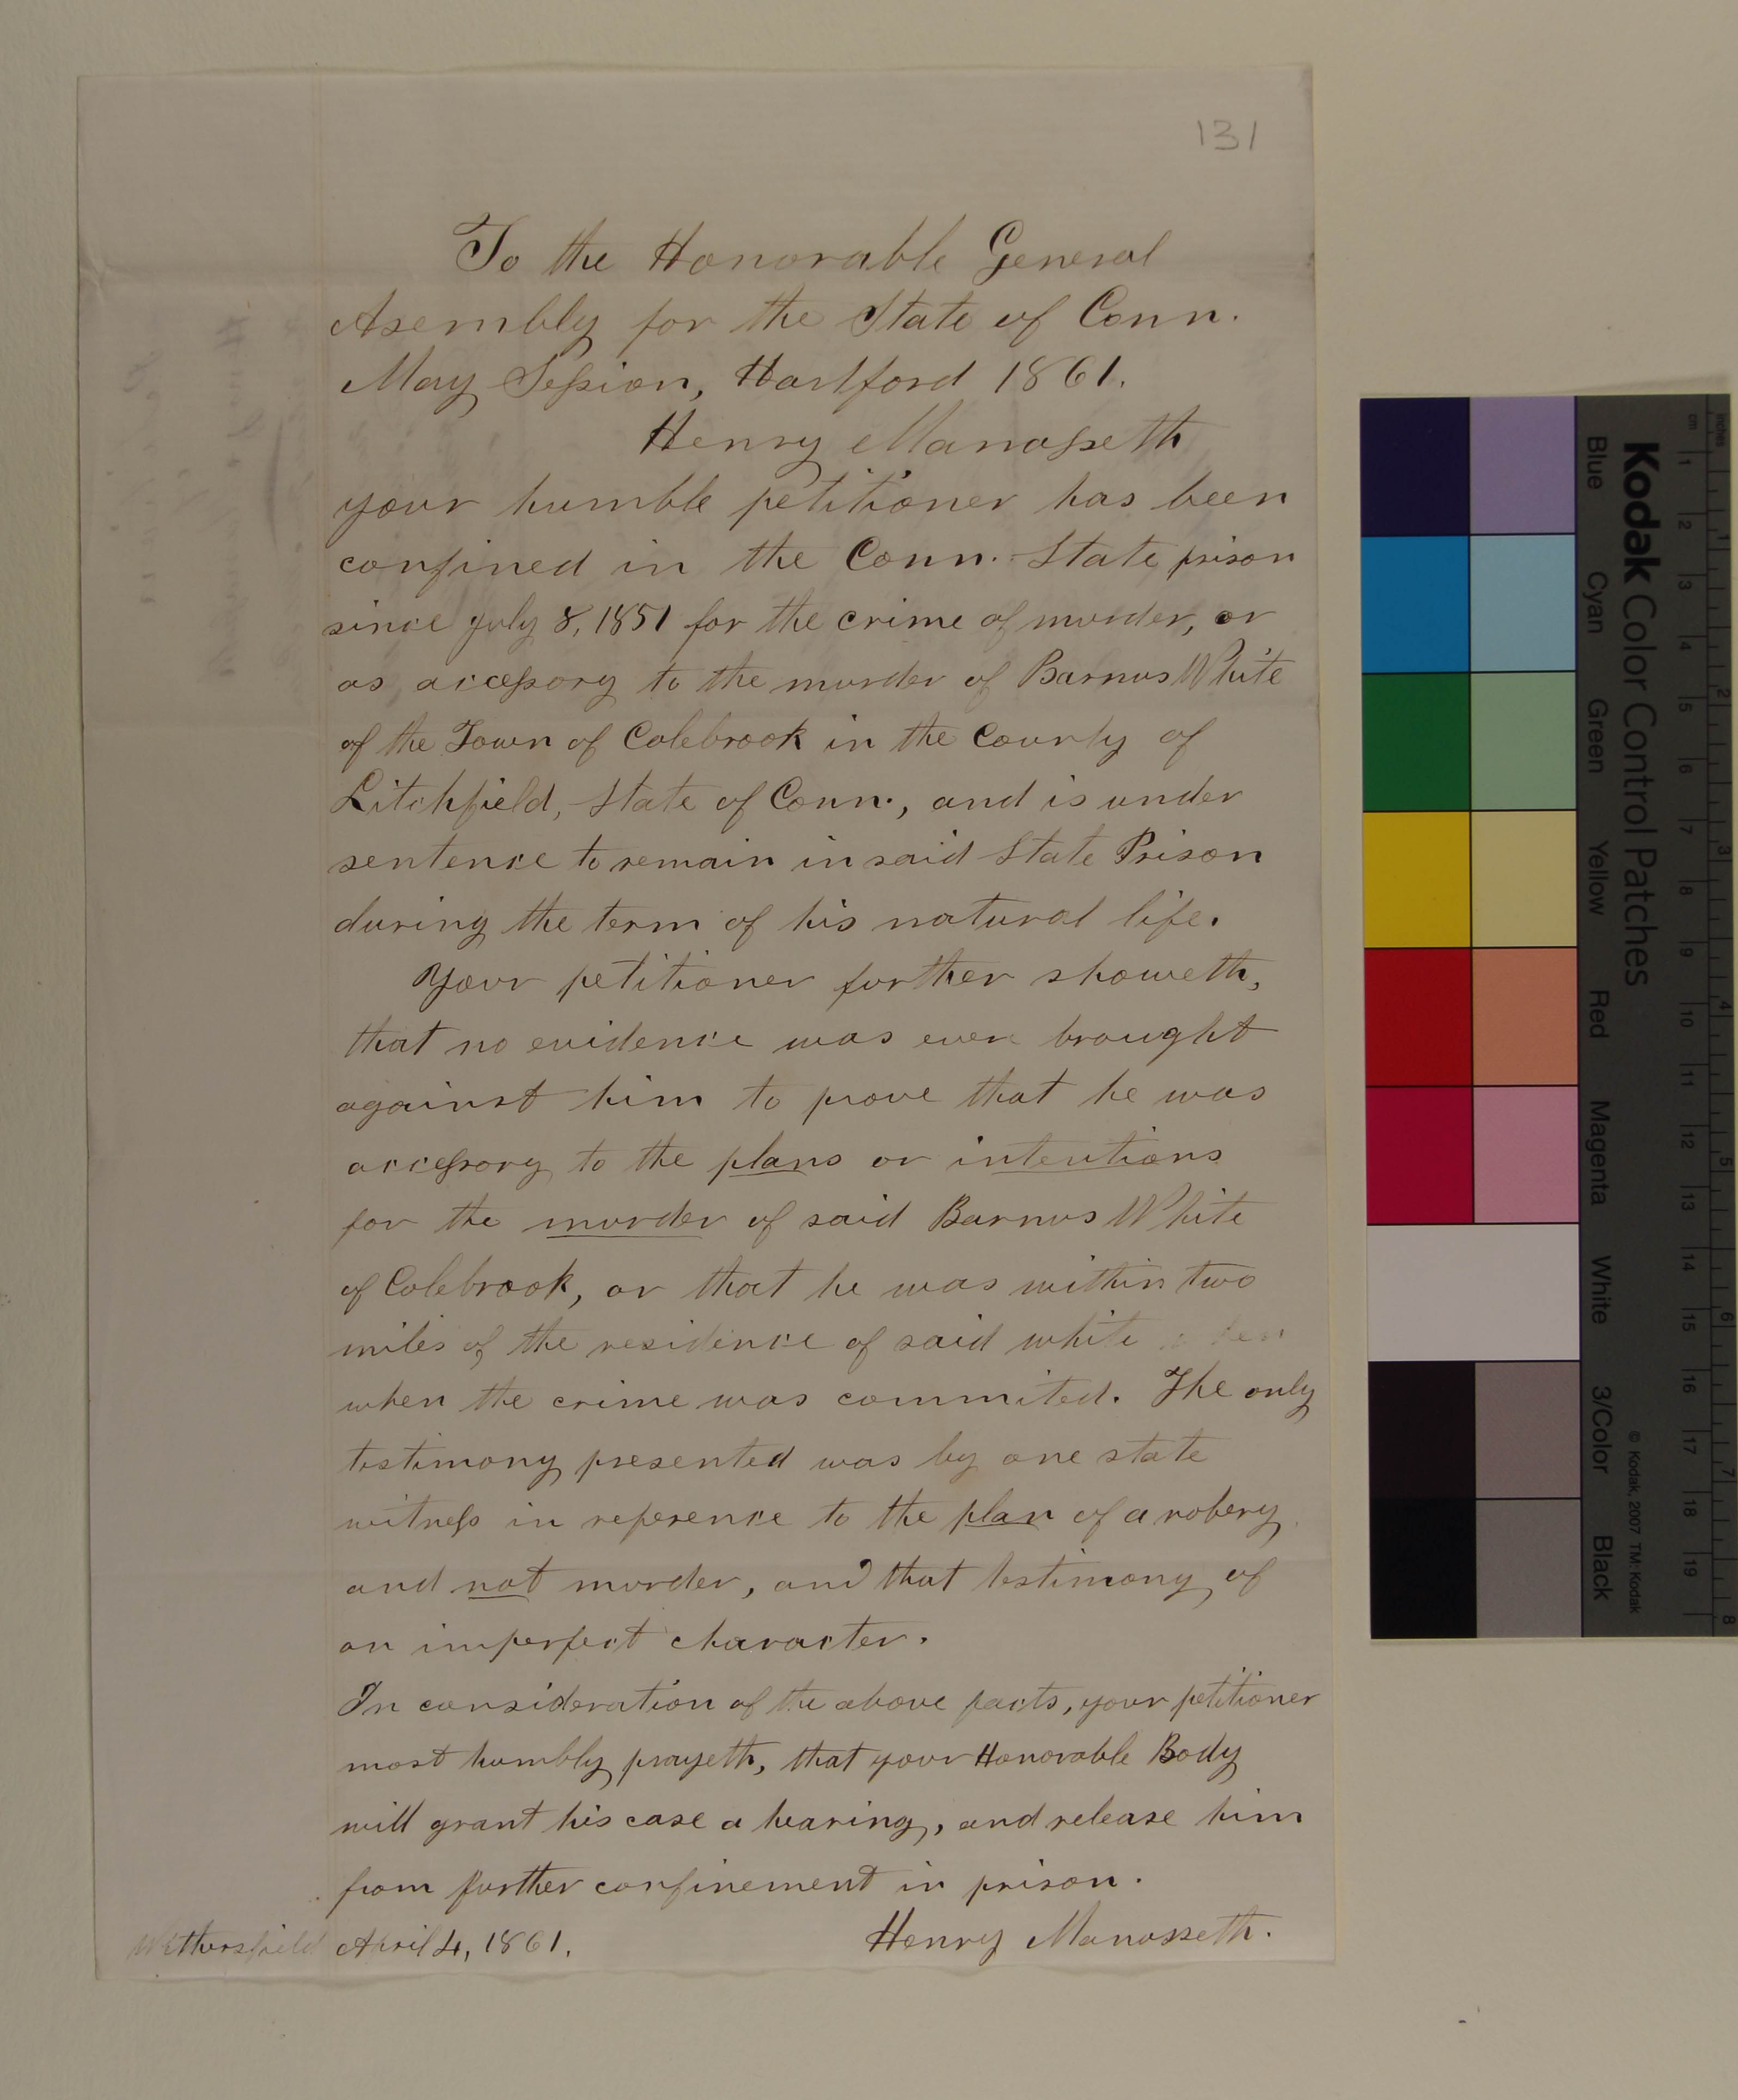 131
To the Honorable General
Asembly for the State of Conn.
May Session, Hartford 1861.
Henry Manasseth
your humble petitioner has been
confined in the Conn. State prison
since july 8, 1851 for the crime of murder, or
as accessory to the murder of Barnus White
of the Town of Colebrook in the County of
Litchfield, State of Conn., and is under
sentence to remain in said State Prison
during the term of his natural life.
Your petitioner further showeth,
that no evidence was ever brought
against him to prove that he was
accessory to the plans or intentions
for the murder of said Barnus White
of Colebrook, or that he was within two
miles of the residence of said white
when the crime was commited. The only
testimony presented was by one state
witness in reference to the plan of a robery
and not murder, and that testimony of
an imperfect character.
In consideration of the above facts, your petitioner
most humbly prayeth, that your Honorable Body
will grant his case a hearing, and release him
from further confinement in prison.
Wethersfield April 4, 1861. Henry Manasseth.
Kodak Color Control Patches
Blue Cyan Green Yellow Red Magenta White 3/Color Black
© Kodak, 2007 TM: Kodak
cm 1 2 3 4 5 6 7 8 9 10 11 12 13 14 15 16 17 18 19
inches 1 2 3 4 5 6 7 8